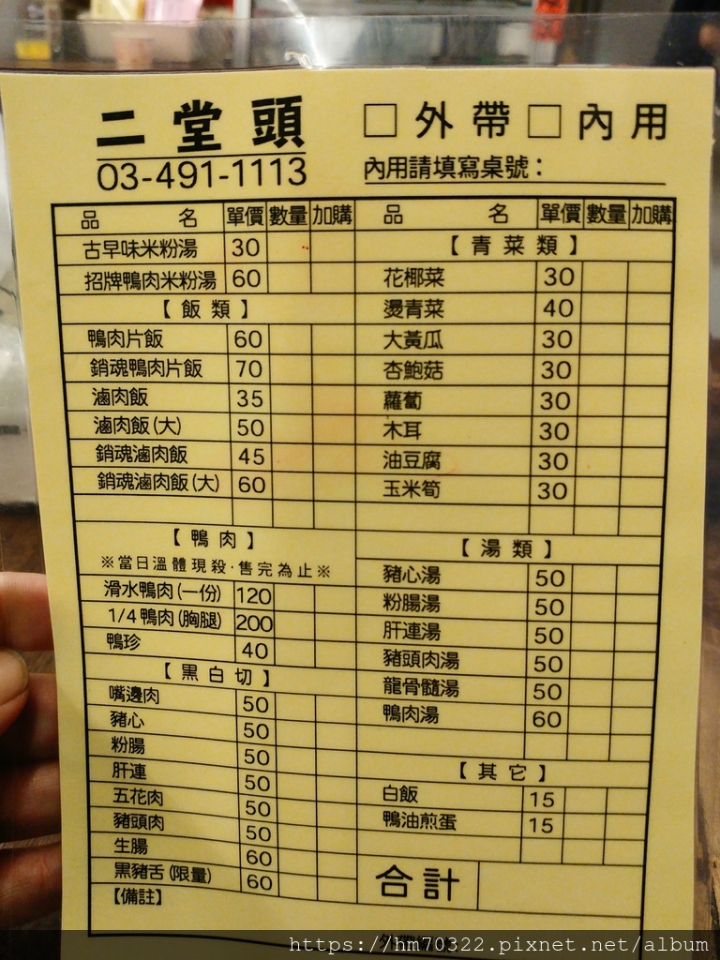 二堂頭
03-491-1113
□外帶□內用
內用請填寫桌號：
品名 單價 數量 加購
古早味米粉湯 30
招牌鴨肉米粉湯 60
【飯類】
鴨肉片飯 60
銷魂鴨肉片飯 70
滷肉飯 35
滷肉飯(大) 50
銷魂滷肉飯 45
銷魂滷肉飯(大) 60
【鴨肉】
※當日溫體現殺·售完為止※
滑水鴨肉(一份) 120
1/4鴨肉(胸腿) 200
鴨珍 40
【黑白切】
嘴邊肉 50
豬心 50
粉腸 50
肝連 50
五花肉 50
豬頭肉 50
生腸 60
黑豬舌(限量) 60
【備註】
品名 單價 數量 加購
【青菜類】
花椰菜 30
燙青菜 40
大黃瓜 30
杏鮑菇 30
蘿蔔 30
木耳 30
油豆腐 30
玉米筍 30
【湯類】
豬心湯 50
粉腸湯 50
肝連湯 50
豬頭肉湯 50
龍骨髓湯 50
鴨肉湯 60
【其它】
白飯 15
鴨油煎蛋 15
合計
https://hm70322.pixnet.net/album